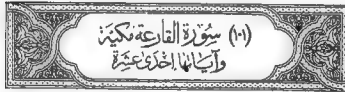 (١٠١) سُورَة القَارعَة مَكيّة
وَآيَانها إحْدَى عَشرَة